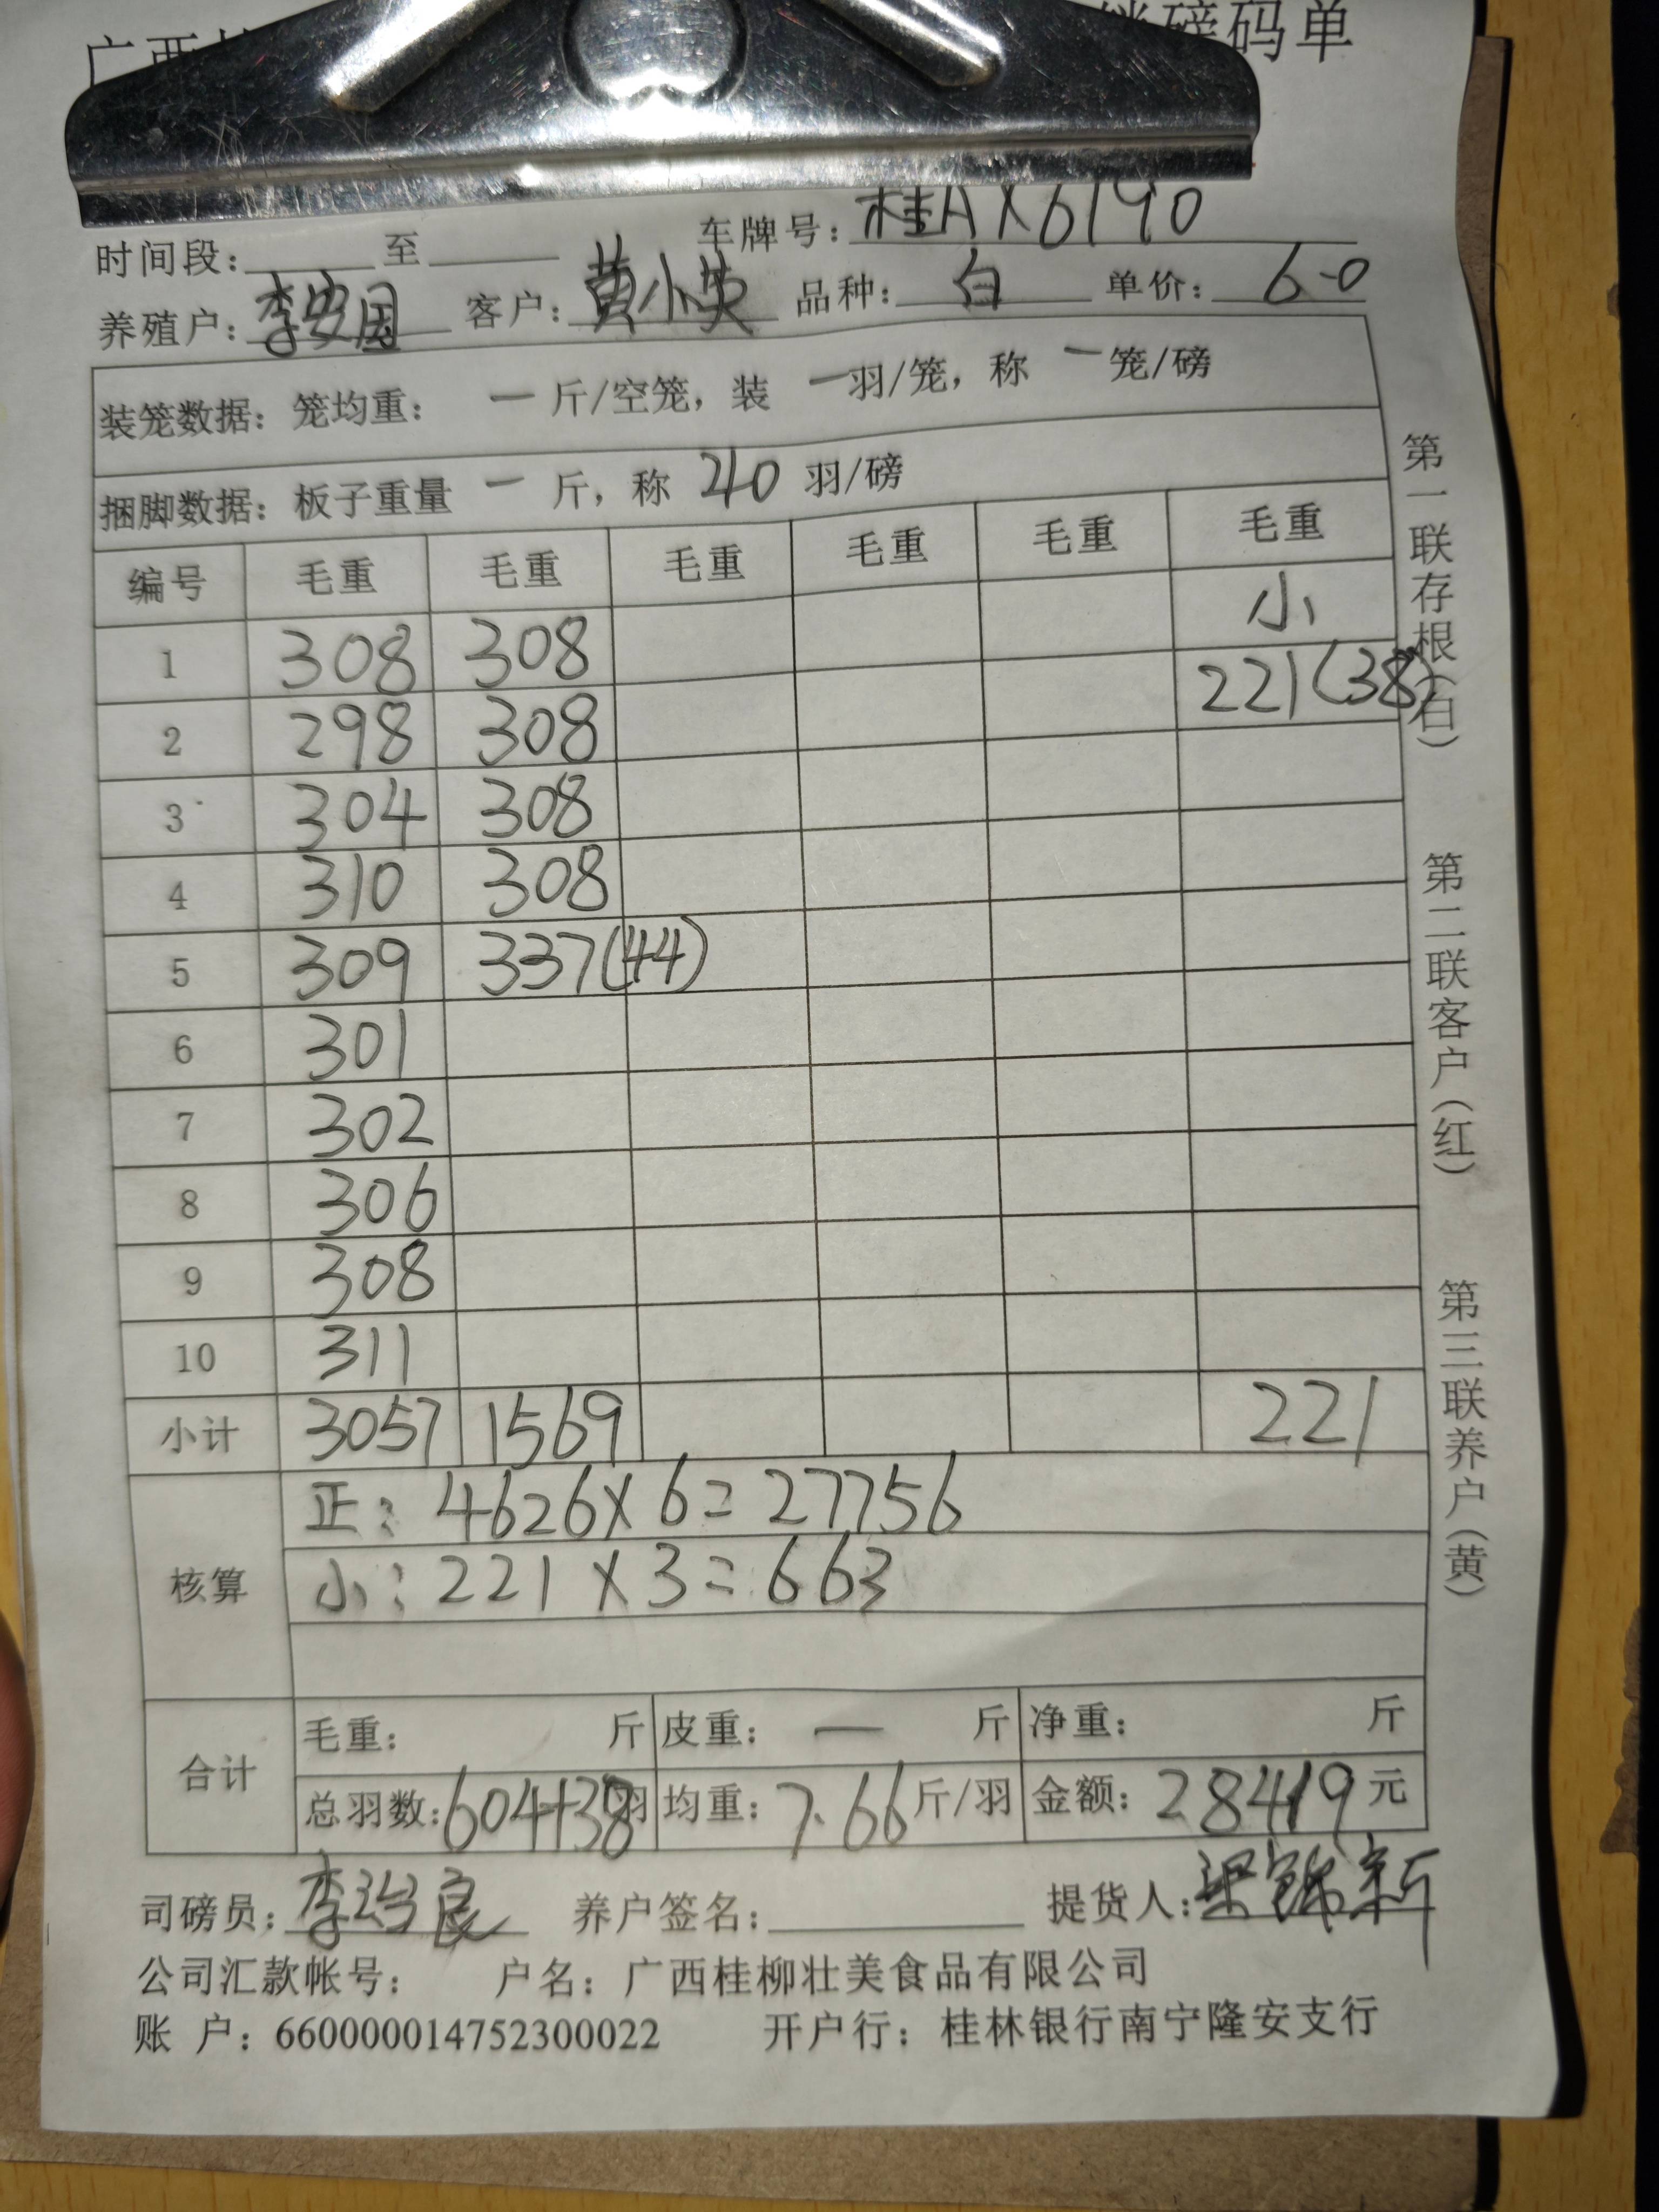 广西 磅码单
时间段: 至 车牌号: 桂AX6190
养殖户: 李安国 客户: 黄小英 品种: 白 单价: 6-0
装笼数据: 笼均重: 一 斤/空笼, 装 一 羽/笼, 称 一 笼/磅
捆脚数据: 板子重量 一 斤, 称 40 羽/磅
编号 毛重 毛重 毛重 毛重 毛重 毛重
小
1 308 308 221(38)
2 298 308
3 304 308
4 310 308
5 309 337(44)
6 301
7 302
8 306
9 308
10 311
小计 3057 1569 221
核算 正: 4626×6=27756
小: 221×3=663
合计 毛重: 斤 皮重: 一 斤 净重: 斤
总羽数: 604+38羽 均重: 7.66斤/羽 金额: 28419元
司磅员: 李治良 养户签名: 提货人: 梁锦新
公司汇款帐号: 户名: 广西桂柳壮美食品有限公司
账 户: 660000014752300022 开户行: 桂林银行南宁隆安支行
第一联存根(白)
第二联客户(红)
第三联养户(黄)